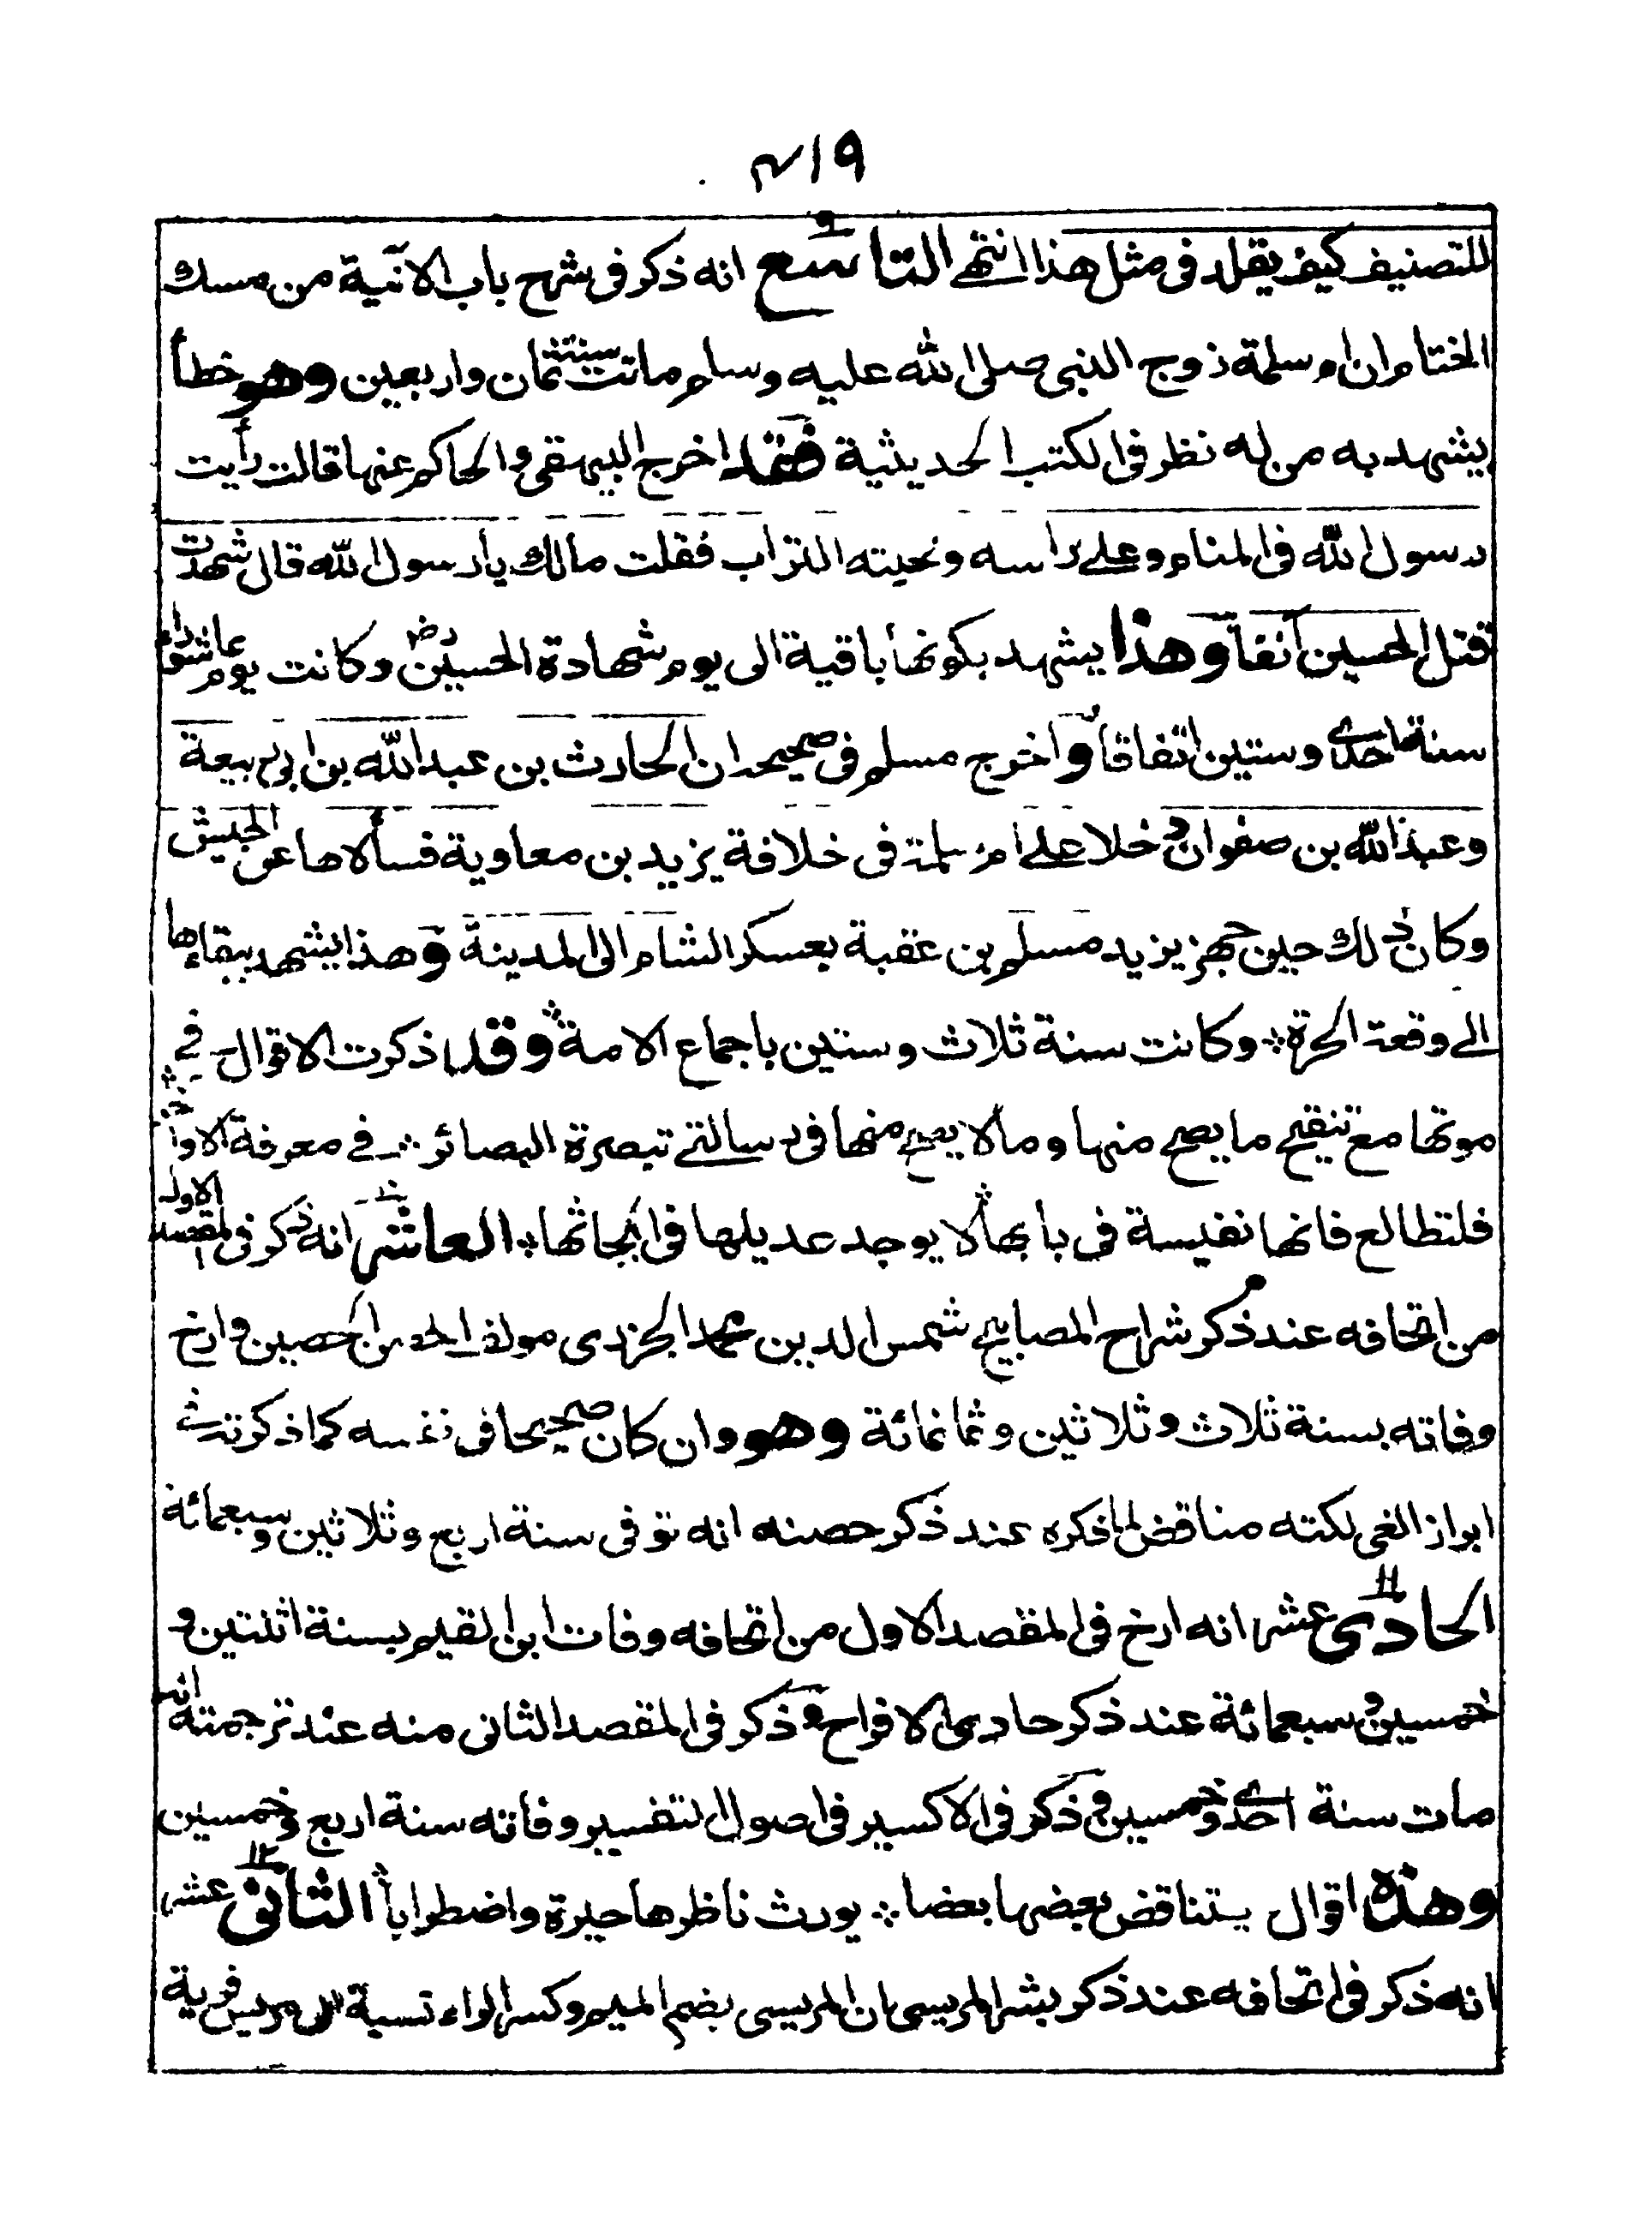 ٤١٩
للتصنيف كيف يقلد فى مثل هذا انتهے التاسع انه ذكر فى شرح باب الآنية من مسك
الختام ان ام سلمة زوج النبى صلى الله عليه وسلم ماتت سنة ثمان واربعين وهو خطأ
يشهد به من له نظر فى الكتب الحديثية فقد اخرج البيهقى والحاكم عنها قالت رأيت
رسول الله فى المنام وعلے راسه ولحيته التراب فقلت مالك يا رسول الله قال شهدت
قتل الحسين آنفا وهذا يشهد بكونها باقية الى يوم شهادة الحسين رض وكانت يوم عاشوراء
سنة احدى وستين اتفاقا واخرج مسلم فى صحيحه ان الحارث بن عبد الله بن ابى ربيعة
وعبد الله بن صفوان دخلا علے ام سلمة فى خلافة يزيد بن معاوية فسألاها عن الجيش
وكان ذلك حين جهز يزيد مسلم بن عقبة بعسكر الشام الى المدينة وهذا يشهد ببقاءها
الے وقعة الحرة وكانت سنة ثلاث وستين باجماع الامة وقد ذكرت الاقوال فے
موتها مع تنقيح ما يصح منها وما لا يصح منها فى رسالتے تبصرة البصائر فے معرفة الاواخر
فلتطالع فانها نفيسة فى بابها لا يوجد عديلها فى ابحاثها العاشر انه ذكر فى المقصد الاول
من اتحافه عند ذكر شراح المصابيح شمس الدين محمد الجزرى مولف الحصن الحصين وارخ
وفاته بسنة ثلاث وثلاثين وثمانمائة وهو وان كان صحيحا فى نفسه كما ذكرته فے
ابراز الغى لكنه مناقض لما ذكره عند ذكر حصنه انه توفى سنة اربع وثلاثين وسبعمائة
الحادى عشر ١١ انه ارخ فى المقصد الاول من اتحافه وفات ابن القيم بسنة اثنتين و
خمسين وسبعمائة عند ذكر حادى الافراح وذكر فى المقصد الثانى منه عند ترجمته انه
مات سنة احدى وخمسين وذكر فى الاكسير فى اصول التفسير وفاته سنة اربع وخمسين
وهذه اقوال يتناقض بعضها بعضا يورث ناظرها حيرة واضطرابا الثانى ١٢ عشر
انه ذكر فى اتحافه عند ذكر بشر المريسى ان المريسى بضم الميم وكسر الراء نسبة الى مريس قرية